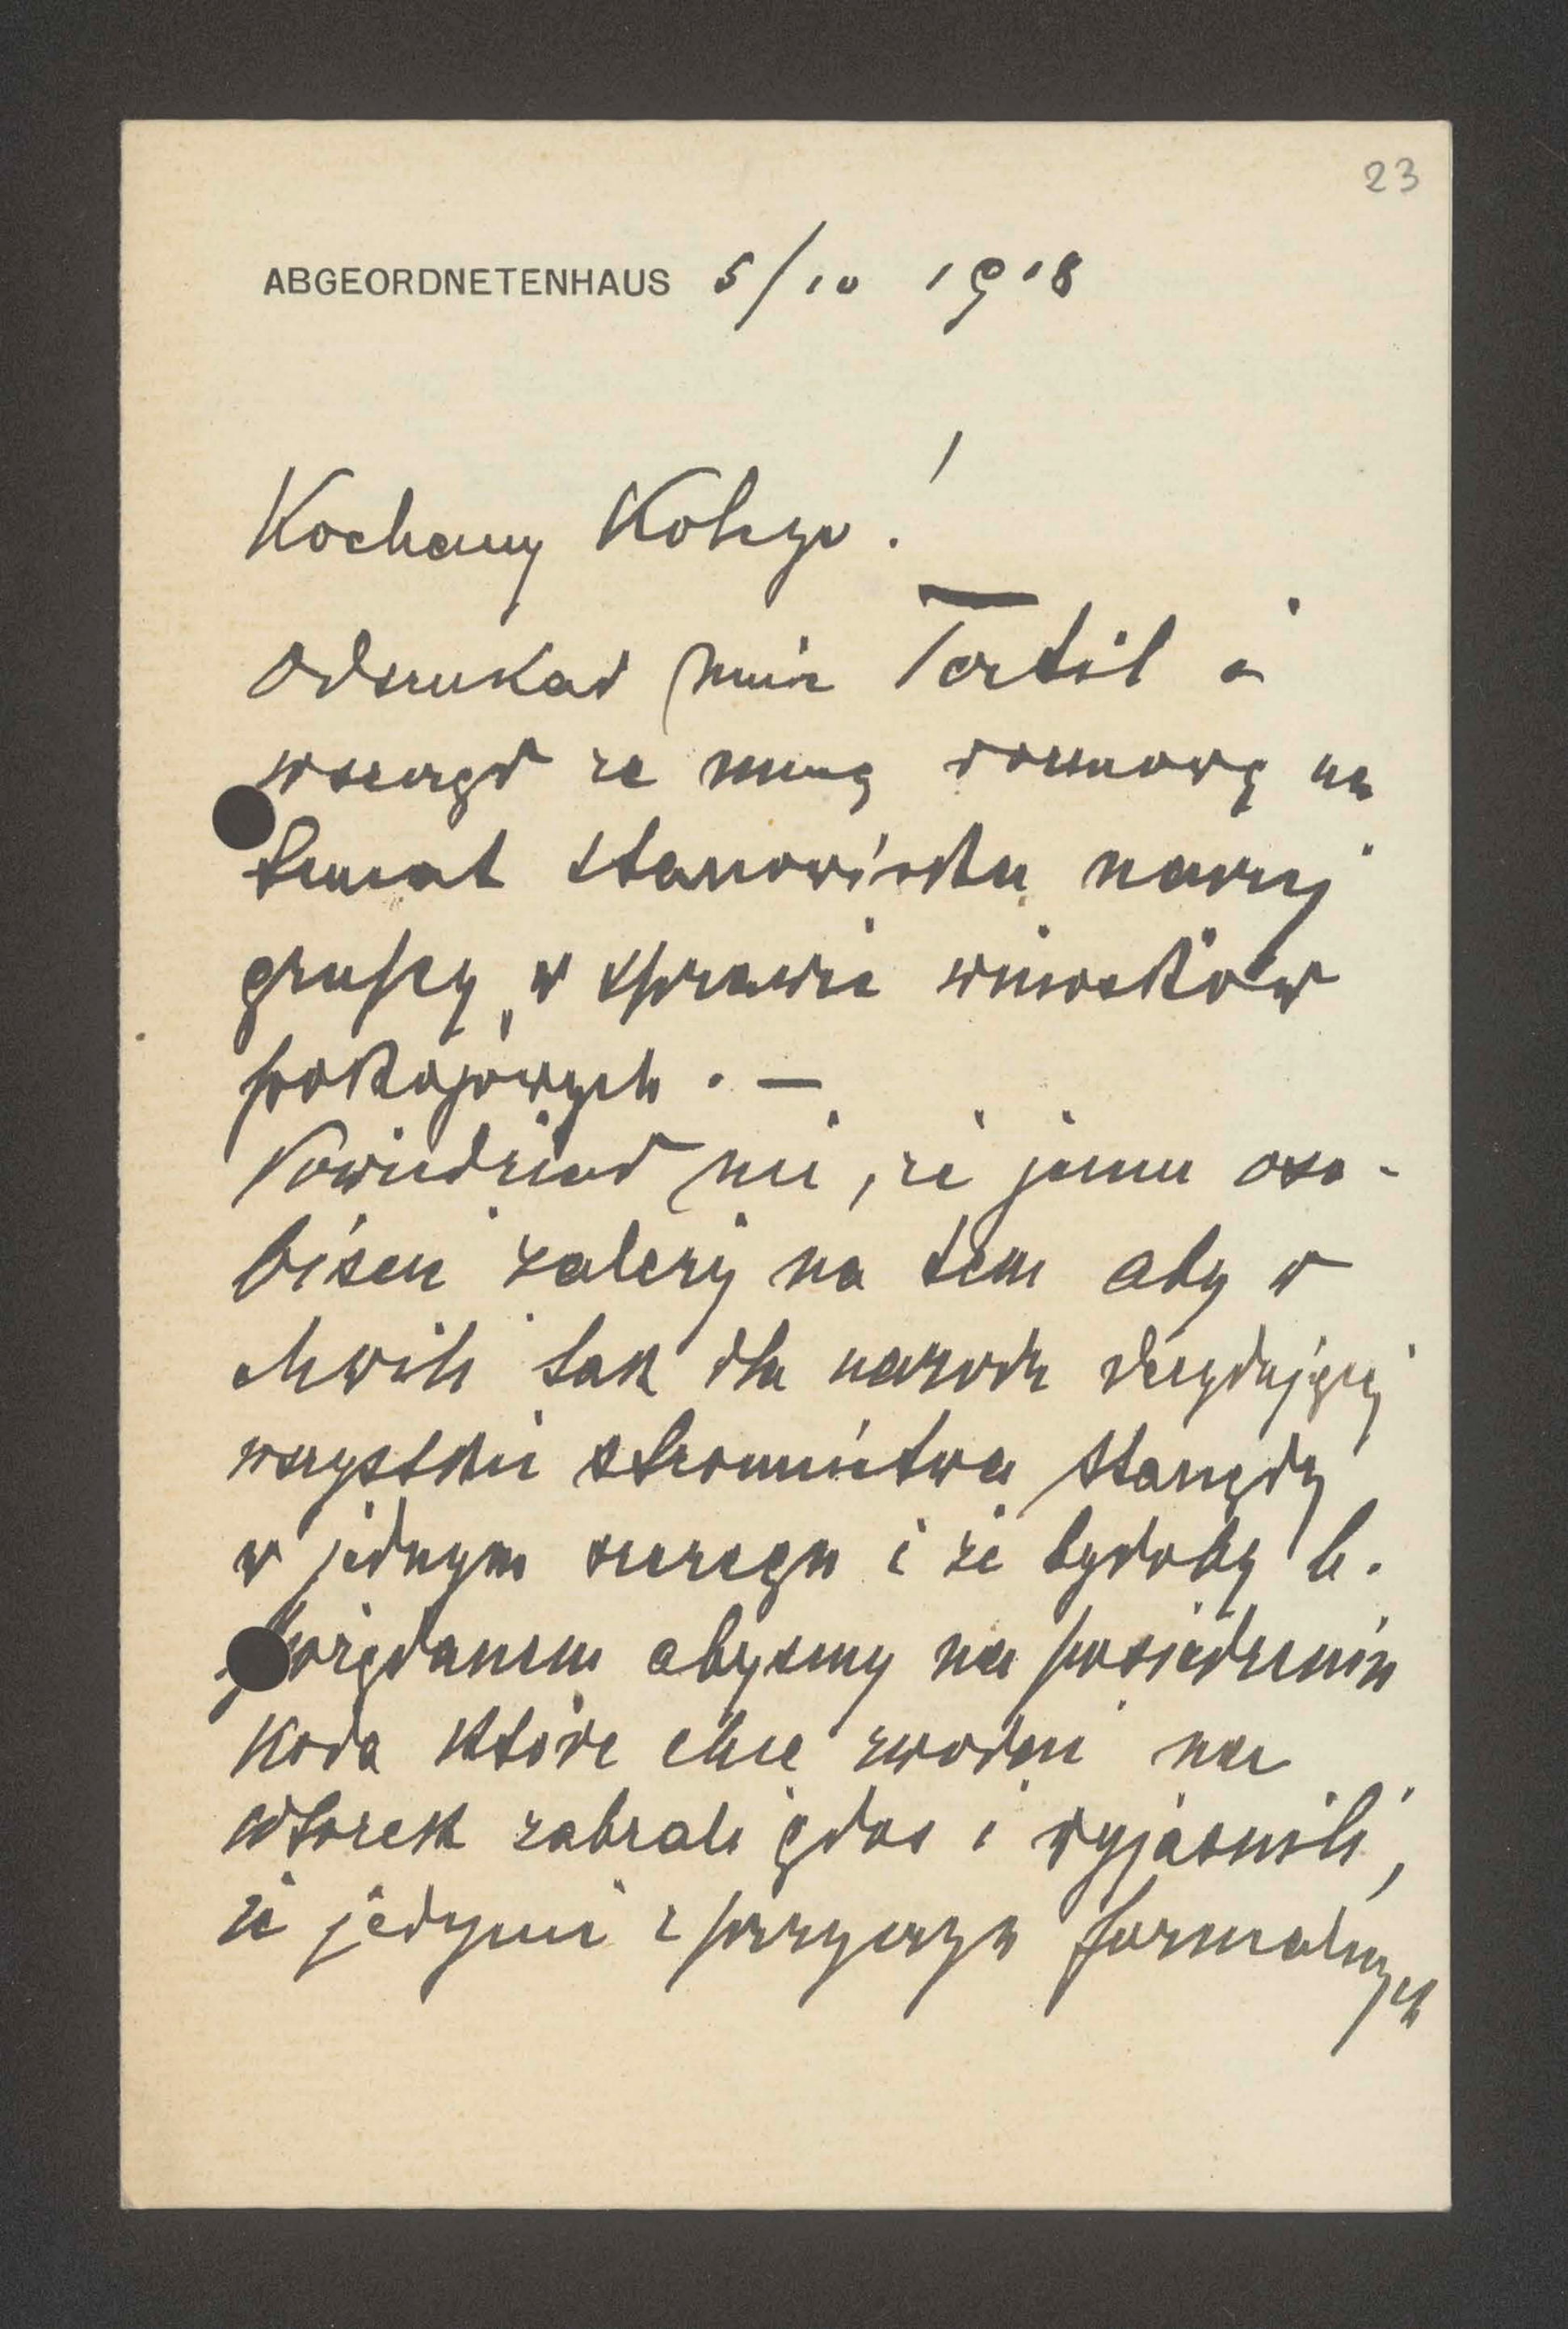 23
ABGEORDNETENHAUS 5/10 1918
Kochany Kolego!
Odszukał mnie Tertil i
wszczął ze mną rozmowę na
temat stanowiska naszej
grupy w sprawie wniosków
pokojowych. —
Powiedział mi, że jemu oso-
biście zależy na tem aby w
chwili tak dla narodu decydującej
wszystkie stronnictwa stanęły
w jednym szeregu i że byłoby b.
pożądanem abyśmy na posiedzeniu
Koła które chce zwołać na
wtorek zabrali głos i wyjaśnili,
że jedynie z przyczyn formalnych